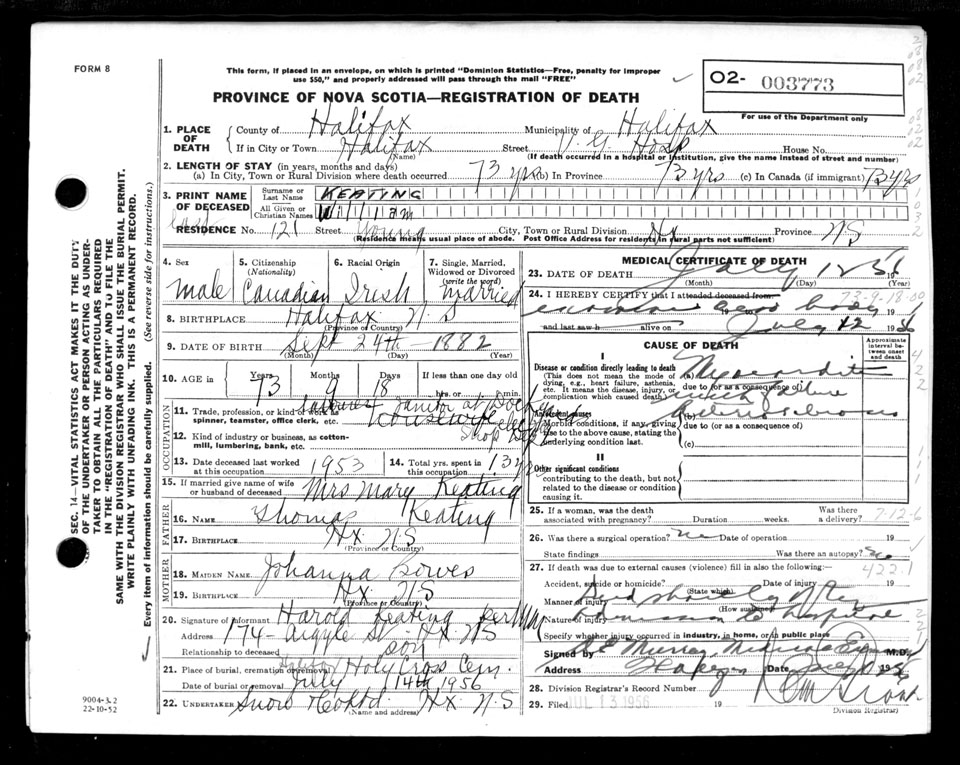 FORM 8
This form, if placed in an envelope, on which is printed "Dominion Statistics—Free, penalty for improper
use $50," and properly addressed will pass through the mail "FREE"
O2- 003773
For use of the Department only
PROVINCE OF NOVA SCOTIA—REGISTRATION OF DEATH
1. PLACE OF DEATH
County of Halifax Municipality of Halifax
If in City or Town Halifax Street V. G. Hosp House No.
(Name) (If death occurred in a hospital or institution, give the name instead of street and number)
2. LENGTH OF STAY (in years, months and days)
(a) In City, Town or Rural Division where death occurred 73 yrs (b) In Province 73 yrs (c) In Canada (if immigrant) 73 yrs
3. PRINT NAME OF DECEASED
Surname or Last Name KEATING
All Given or Christian Names William
RESIDENCE No. 121 Street Young City, Town or Rural Division Hx Province N S
(Residence means usual place of abode. Post Office Address for residents in rural parts not sufficient)
4. Sex
male
5. Citizenship (Nationality)
Canadian
6. Racial Origin
Irish
7. Single, Married, Widowed or Divorced (write the word)
Married
8. BIRTHPLACE Halifax N. S
(Province or Country)
9. DATE OF BIRTH Sept 24th 1882
(Month) (Day) (Year)
10. AGE in Years Months Days If less than one day old
73 9 18 hrs. or min.
OCCUPATION
11. Trade, profession, or kind of work as spinner, teamster, office clerk, etc. Labourer Janitor at Dockyard
12. Kind of industry or business, as cotton-mill, lumbering, bank, etc. Shop
13. Date deceased last worked at this occupation 1953
14. Total yrs. spent in this occupation 13 yrs
15. If married give name of wife or husband of deceased Mrs Mary Keating
FATHER
16. NAME Thomas Keating
17. BIRTHPLACE Hx N.S
(Province or Country)
MOTHER
18. MAIDEN NAME Johanna Bowes
19. BIRTHPLACE Hx N.S
(Province or Country)
20. Signature of informant Harold Keating per
Address 174 Argyle St. Hx NS
Relationship to deceased son
21. Place of burial, cremation or removal Holy Cross Cem.
Date of burial or removal July 14th 1956
22. UNDERTAKER Snow & Co Ltd Hx N.S
(Name and address)
MEDICAL CERTIFICATE OF DEATH
23. DATE OF DEATH July 12 56
(Month) (Day) (Year)
24. I HEREBY CERTIFY that I attended deceased from 73-9-18-00
19 body 19
and last saw h alive on July 12 1956
CAUSE OF DEATH
Approximate interval between onset and death
I
Disease or condition directly leading to death
(This does not mean the mode of dying, e.g., heart failure, asthenia, etc. It means the disease, injury, or complication which caused death
(a)
due to (or as a consequence of)
Antecedent causes
Morbid conditions, if any, giving rise to the above cause, stating the underlying condition last.
(b)
due to (or as a consequence)
(c)
II
Other significant conditions
contributing to the death, but not related to the disease or condition causing it.
25. If a woman, was the death associated with pregnancy? Duration weeks. Was there a delivery? 7-12-6
26. Was there a surgical operation? no Date of operation 19
State findings Was there an autopsy? no
27. If death was due to external causes (violence) fill in also the following:— 4221
Accident, suicide or homicide? Date of injury 19
(State which)
Manner of injury Died shortly after
(How sustained)
Nature of injury admission to hospital
Specify whether injury occurred in industry, in home, or in public place
Signed by Murray, Medical Ex M.D.
Address Halifax Date July 1956
28. Division Registrar's Record Number
29. Filed JUL 13 1956 19
Division Registrar)
SEC. 14—VITAL STATISTICS ACT MAKES IT THE DUTY
OF THE UNDERTAKER OR PERSON ACTING AS UNDER-
TAKER TO OBTAIN ALL THE PARTICULARS REQUIRED
IN THE "REGISTRATION OF DEATH" AND TO FILE THE
SAME WITH THE DIVISION REGISTRAR WHO SHALL ISSUE THE BURIAL PERMIT.
WRITE PLAINLY WITH UNFADING INK. THIS IS A PERMANENT RECORD.
Every item of information should be carefully supplied. (See reverse side for instructions.)
9004-3.2
22-10-52